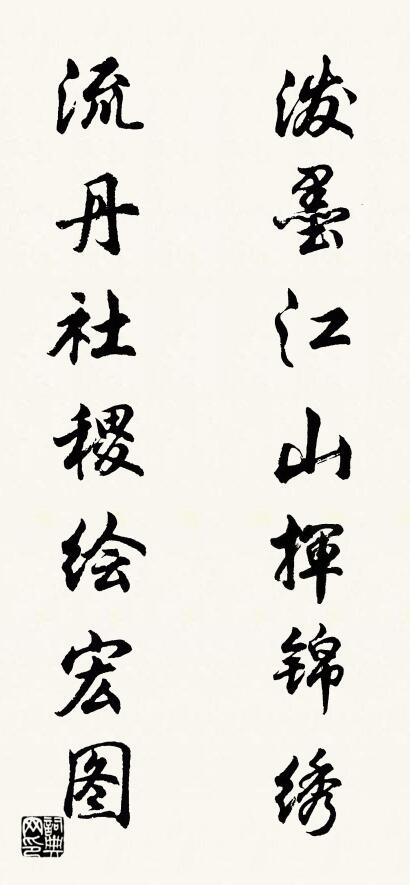 泼墨江山揮锦绣
流丹社稷绘宏图
詞典网印